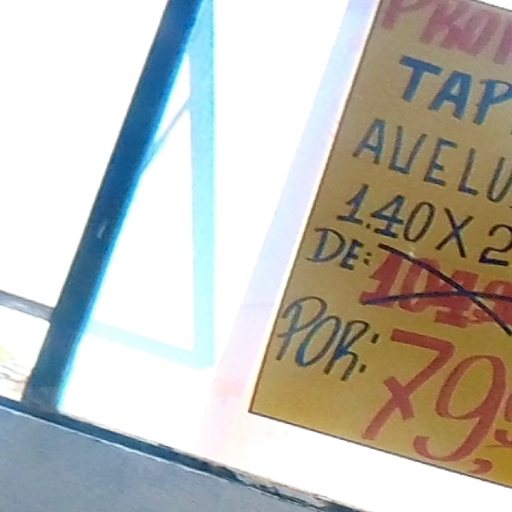 PRO
TAP
AVELU
1.40 X 2
DE: 104,9
POR: 79,9